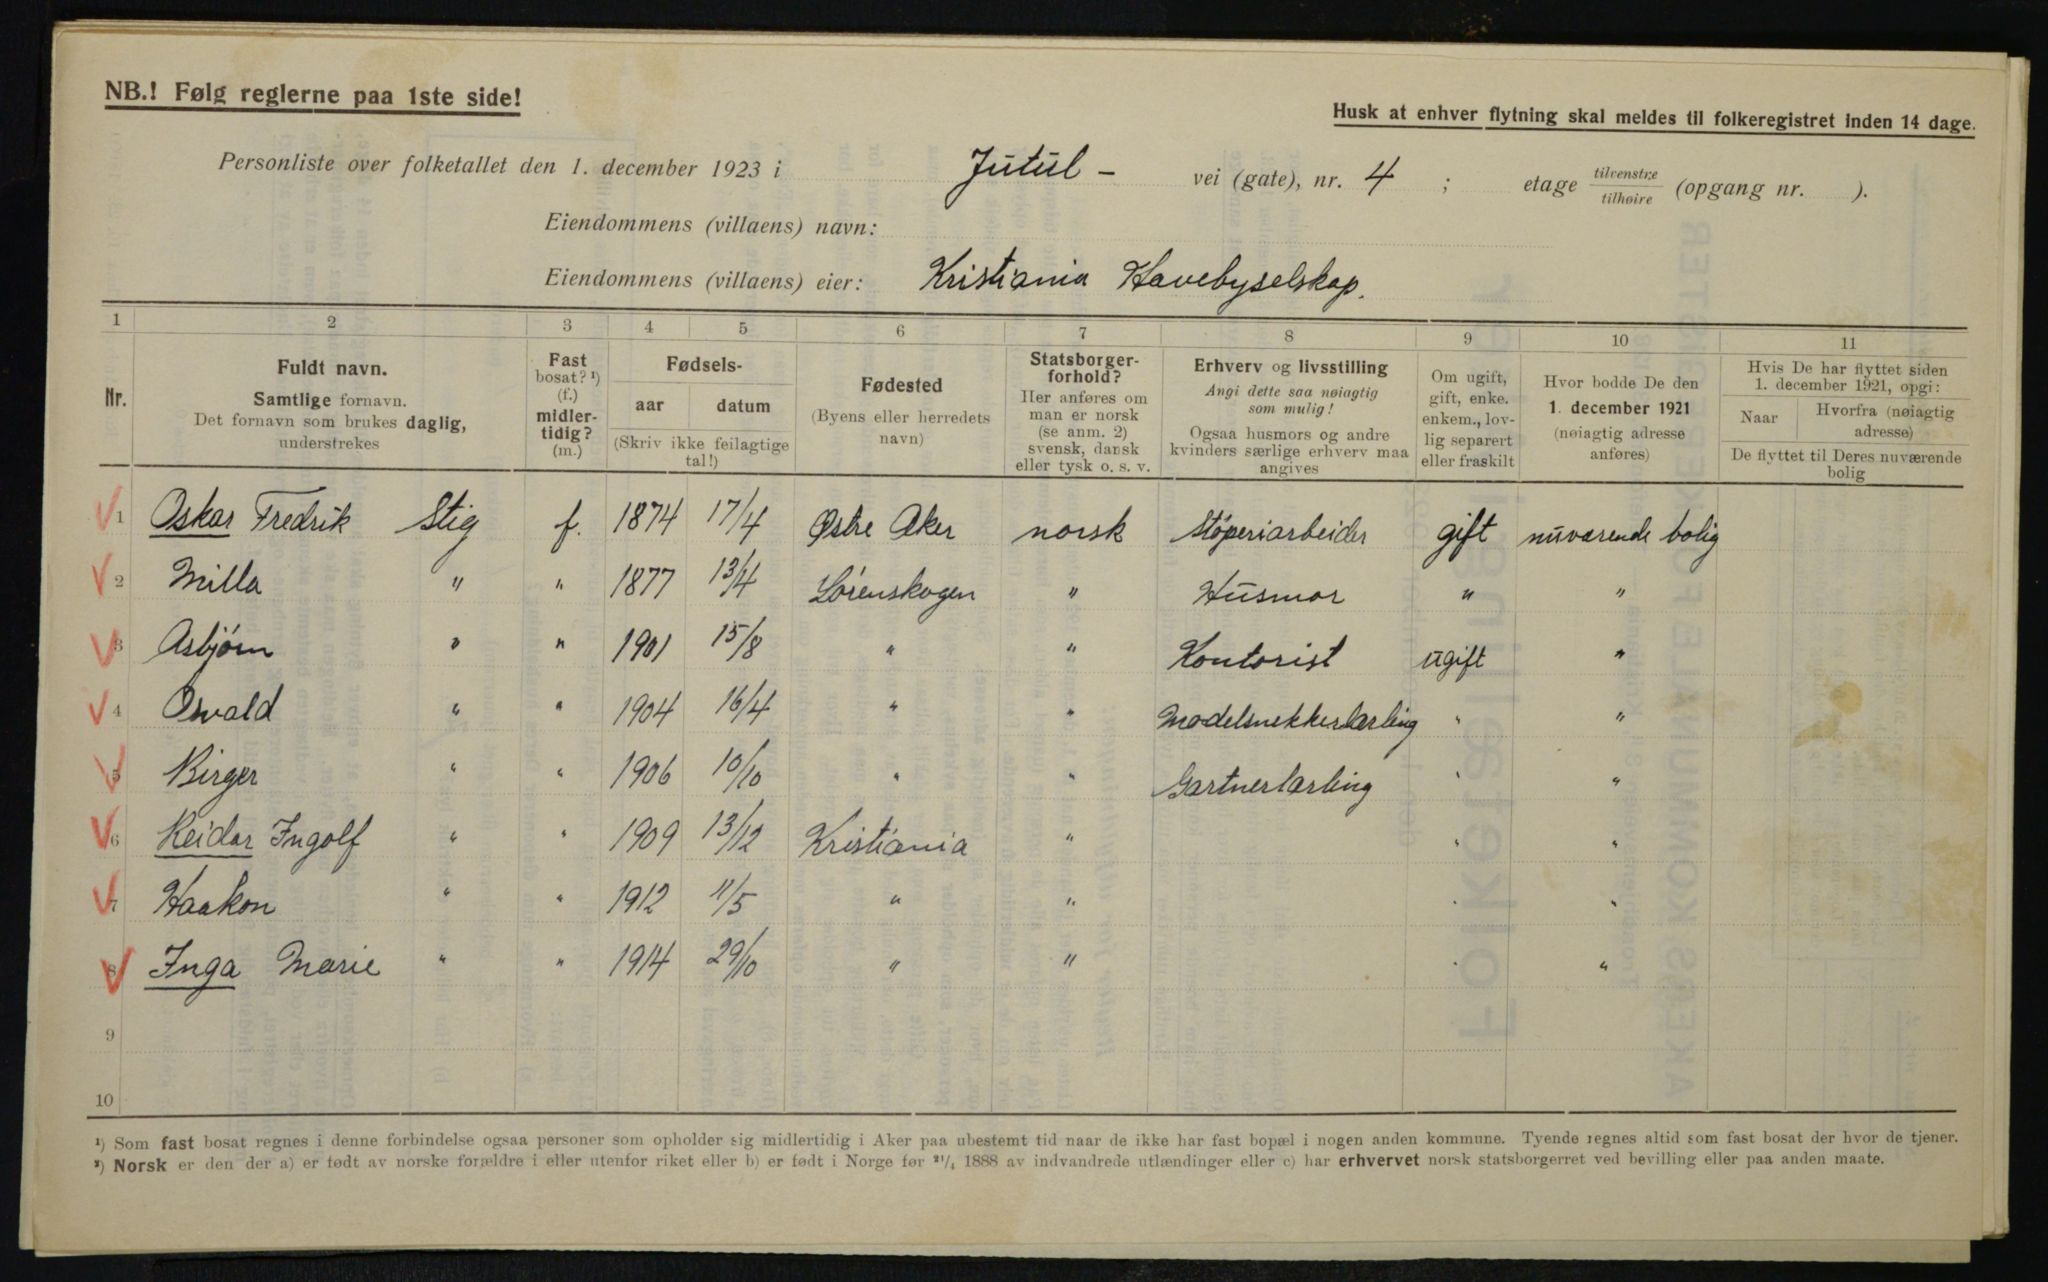 NB.! Følg reglerne paa 1ste side!
Husk at enhver flytning skal meldes til folkeregistret inden 14 dage.
Personliste over folketallet den 1. december 1923 i Jutul - vei (gate), nr. 4 ; etage tilvenstre/tilhøire (opgang nr. ).
Eiendommens (villaens) navn:
Eiendommens (villaens) eier: Kristiania Havebyselskap.
1 2 3 4 5 6 7 8 9 10 11
Nr.
Fuldt navn.
Samtlige fornavn.
Det fornavn som brukes daglig,
understrekes
Fast
bosat? ¹)
(f.)
midler-
tidig?
(m.)
Fødsels-
aar datum
(Skriv ikke feilagtige
tal!)
Fødested
(Byens eller herredets
navn)
Statsborger-
forhold?
Her anføres om
man er norsk
(se anm. 2)
svensk, dansk
eller tysk o. s. v.
Erhverv og livsstilling
Angi dette saa nøiagtig
som mulig!
Ogsaa husmors og andre
kvinders særlige erhverv maa
angives
Om ugift,
gift, enke.
enkem., lov-
lig separert
eller fraskilt
Hvor bodde De den
1. december 1921
(nøiagtig adresse
anføres)
Hvis De har flyttet siden
1. december 1921, opgi:
Naar Hvorfra (nøiagtig
adresse)
De flyttet til Deres nuværende
bolig
1 Oskar Fredrik Stig f. 1874 17/4 Østre Aker norsk Støperiarbeider gift nuværende bolig
2 Milla " " 1877 13/4 Lørenskogen " Husmor " "
3 Asbjørn " " 1901 15/8 " " Kontorist ugift "
4 Osvald " " 1904 16/4 " " Modelsnekkerlærling " "
5 Birger " " 1906 10/10 " " Gartnerlærling " "
6 Reidar Ingolf " " 1909 13/12 Kristiania " " "
7 Haakon " " 1912 11/5 " " " "
8 Inga Marie " " 1914 29/10 " " " "
9
10
¹) Som fast bosat regnes i denne forbindelse ogsaa personer som opholder sig midlertidig i Aker paa ubestemt tid naar de ikke har fast bopæl i nogen anden kommune. Tyende regnes altid som fast bosat der hvor de tjener.
²) Norsk er den der a) er født av norske forældre i eller utenfor riket eller b) er født i Norge før ²¹/₄ 1888 av indvandrede utlændinger eller c) har erhvervet norsk statsborgerret ved bevilling eller paa anden maate.